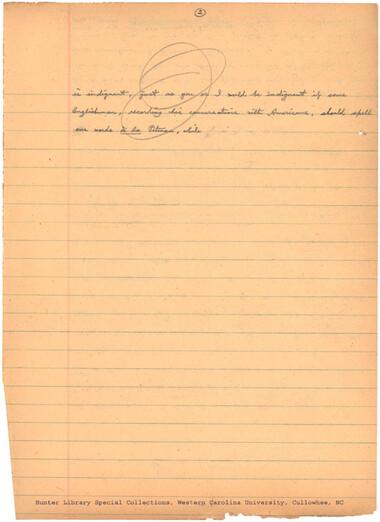 2
is indignant, just as you or I would be indignant if some
Englishman, recording his conversations with Americans, should spell
our words à la Pitman, while
Hunter Library Special Collections, Western Carolina University, Cullowhee, NC